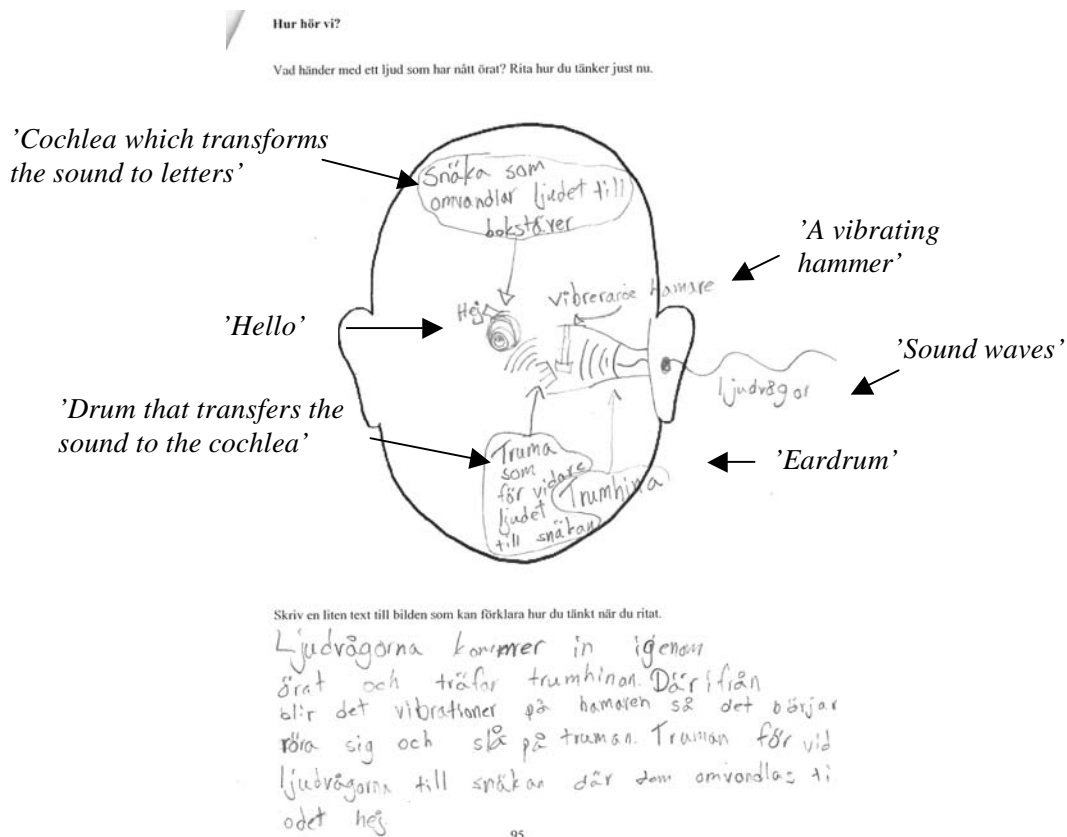 Hur hör vi?
Vad händer med ett ljud som har nått örat? Rita hur du tänker just nu.
'Cochlea which transforms
the sound to letters'
Snäka som
omvandlar ljudet till
bokstäver
'A vibrating
hammer'
Vibrerande hamare
Hej
'Hello'
'Sound waves'
ljudvågor
'Drum that transfers the
sound to the cochlea'
Truma
som
för vidare
ljudet
till snäkan
Trumhina
'Eardrum'
Skriv en liten text till bilden som kan förklara hur du tänkt när du ritat.
Ljudvågorna kommer in igenom
örat och träfar trumhinan. Där ifrån
blir det vibrationer på hamaren så det börjar
röra sig och slå på truman. Truman för vid
ljudvågorna till snäkan där dom omvondlas ti
odet hej.
95